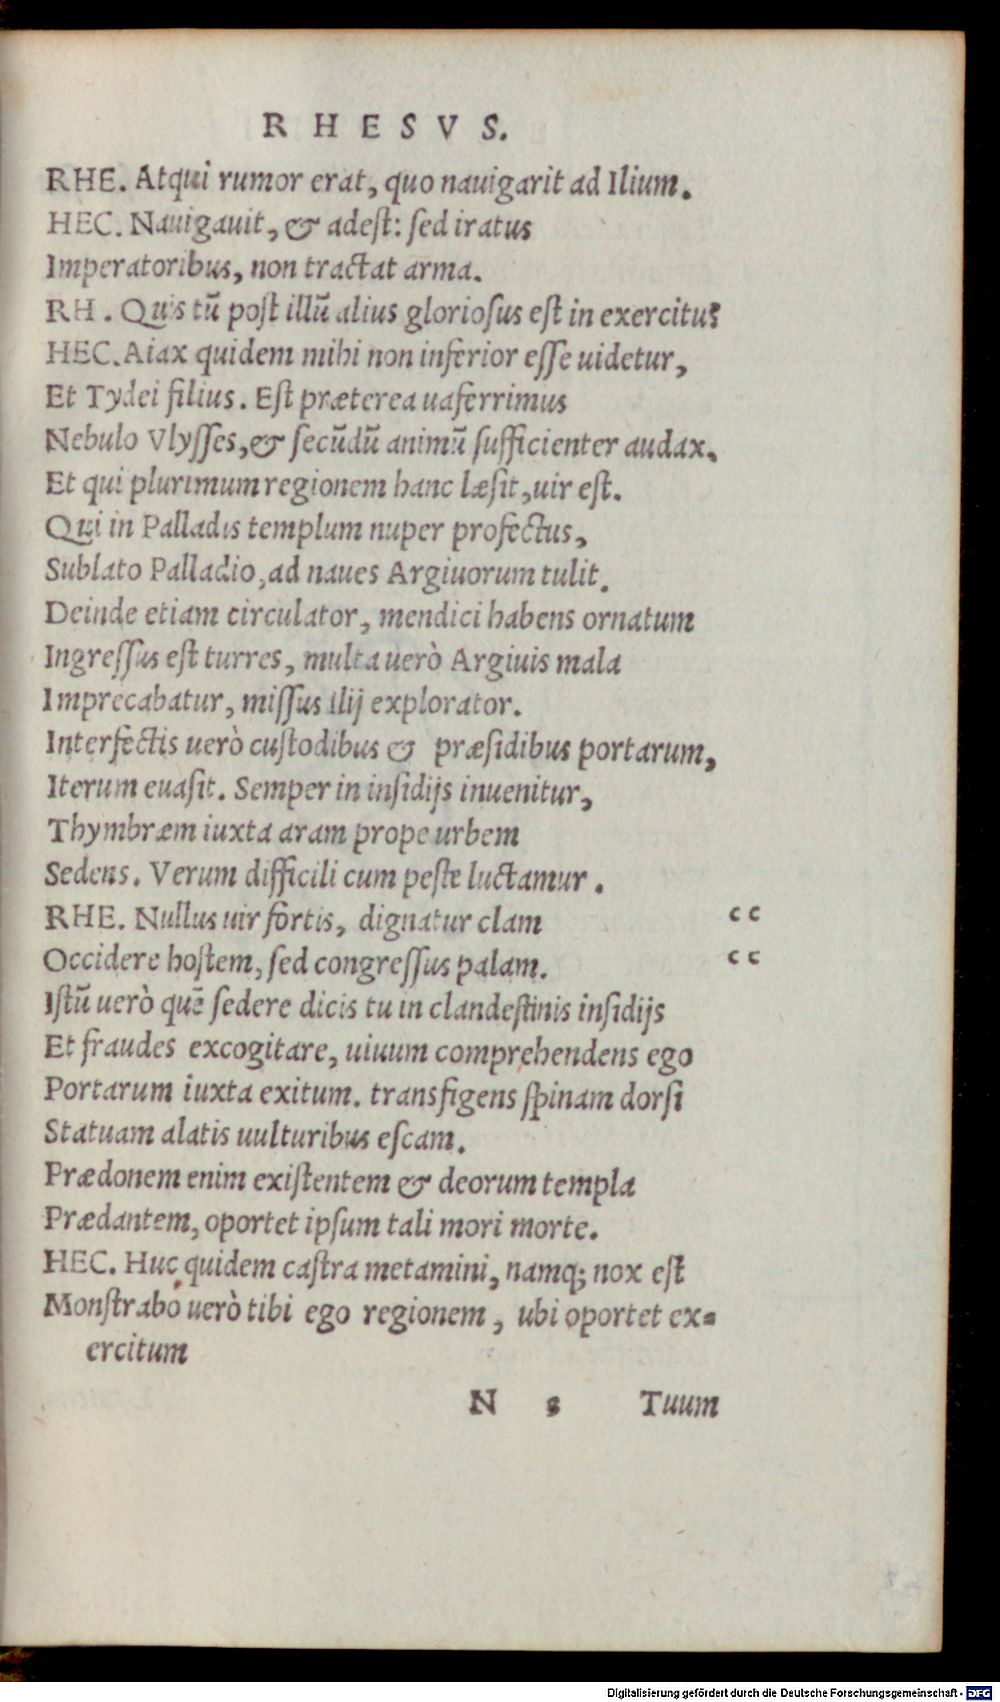 RHESVS.
RHE. Atqui rumor erat, quo nauigarit ad Ilium.
HEC. Nauigauit, & adest: sed iratus
Imperatoribus, non tractat arma.
RH. Quis tū post illū alius gloriosus est in exercitu?
HEC. Aiax quidem mihi non inferior esse uidetur,
Et Tydei filius. Est præterea uaferrimus
Nebulo Vlysses, & secūdū animū sufficienter audax.
Et qui plurimum regionem hanc læsit, uir est.
Qui in Palladis templum nuper profectus,
Sublato Palladio, ad naues Argiuorum tulit.
Deinde etiam circulator, mendici habens ornatum
Ingressus est turres, multa uerò Argiuis mala
Imprecabatur, missus Ilij explorator.
Interfectis uerò custodibus & præsidibus portarum,
Iterum euasit. Semper in insidijs inuenitur,
Thymbræm iuxta aram prope urbem
Sedens. Verum difficili cum peste luctamur.
RHE. Nullus uir fortis, dignatur clam cc
Occidere hostem, sed congressus palam. cc
Istū uerò quē sedere dicis tu in clandestinis insidijs
Et fraudes excogitare, uiuum comprehendens ego
Portarum iuxta exitum. transfigens spinam dorsi
Statuam alatis uulturibus escam.
Prædonem enim existentem & deorum templa
Prædantem, oportet ipsum tali mori morte.
HEC. Huc quidem castra metamini, namq; nox est
Monstrabo uerò tibi ego regionem, ubi oportet ex=
ercitum
N s Tuum
Digitalisierung gefördert durch die Deutsche Forschungsgemeinschaft - DFG